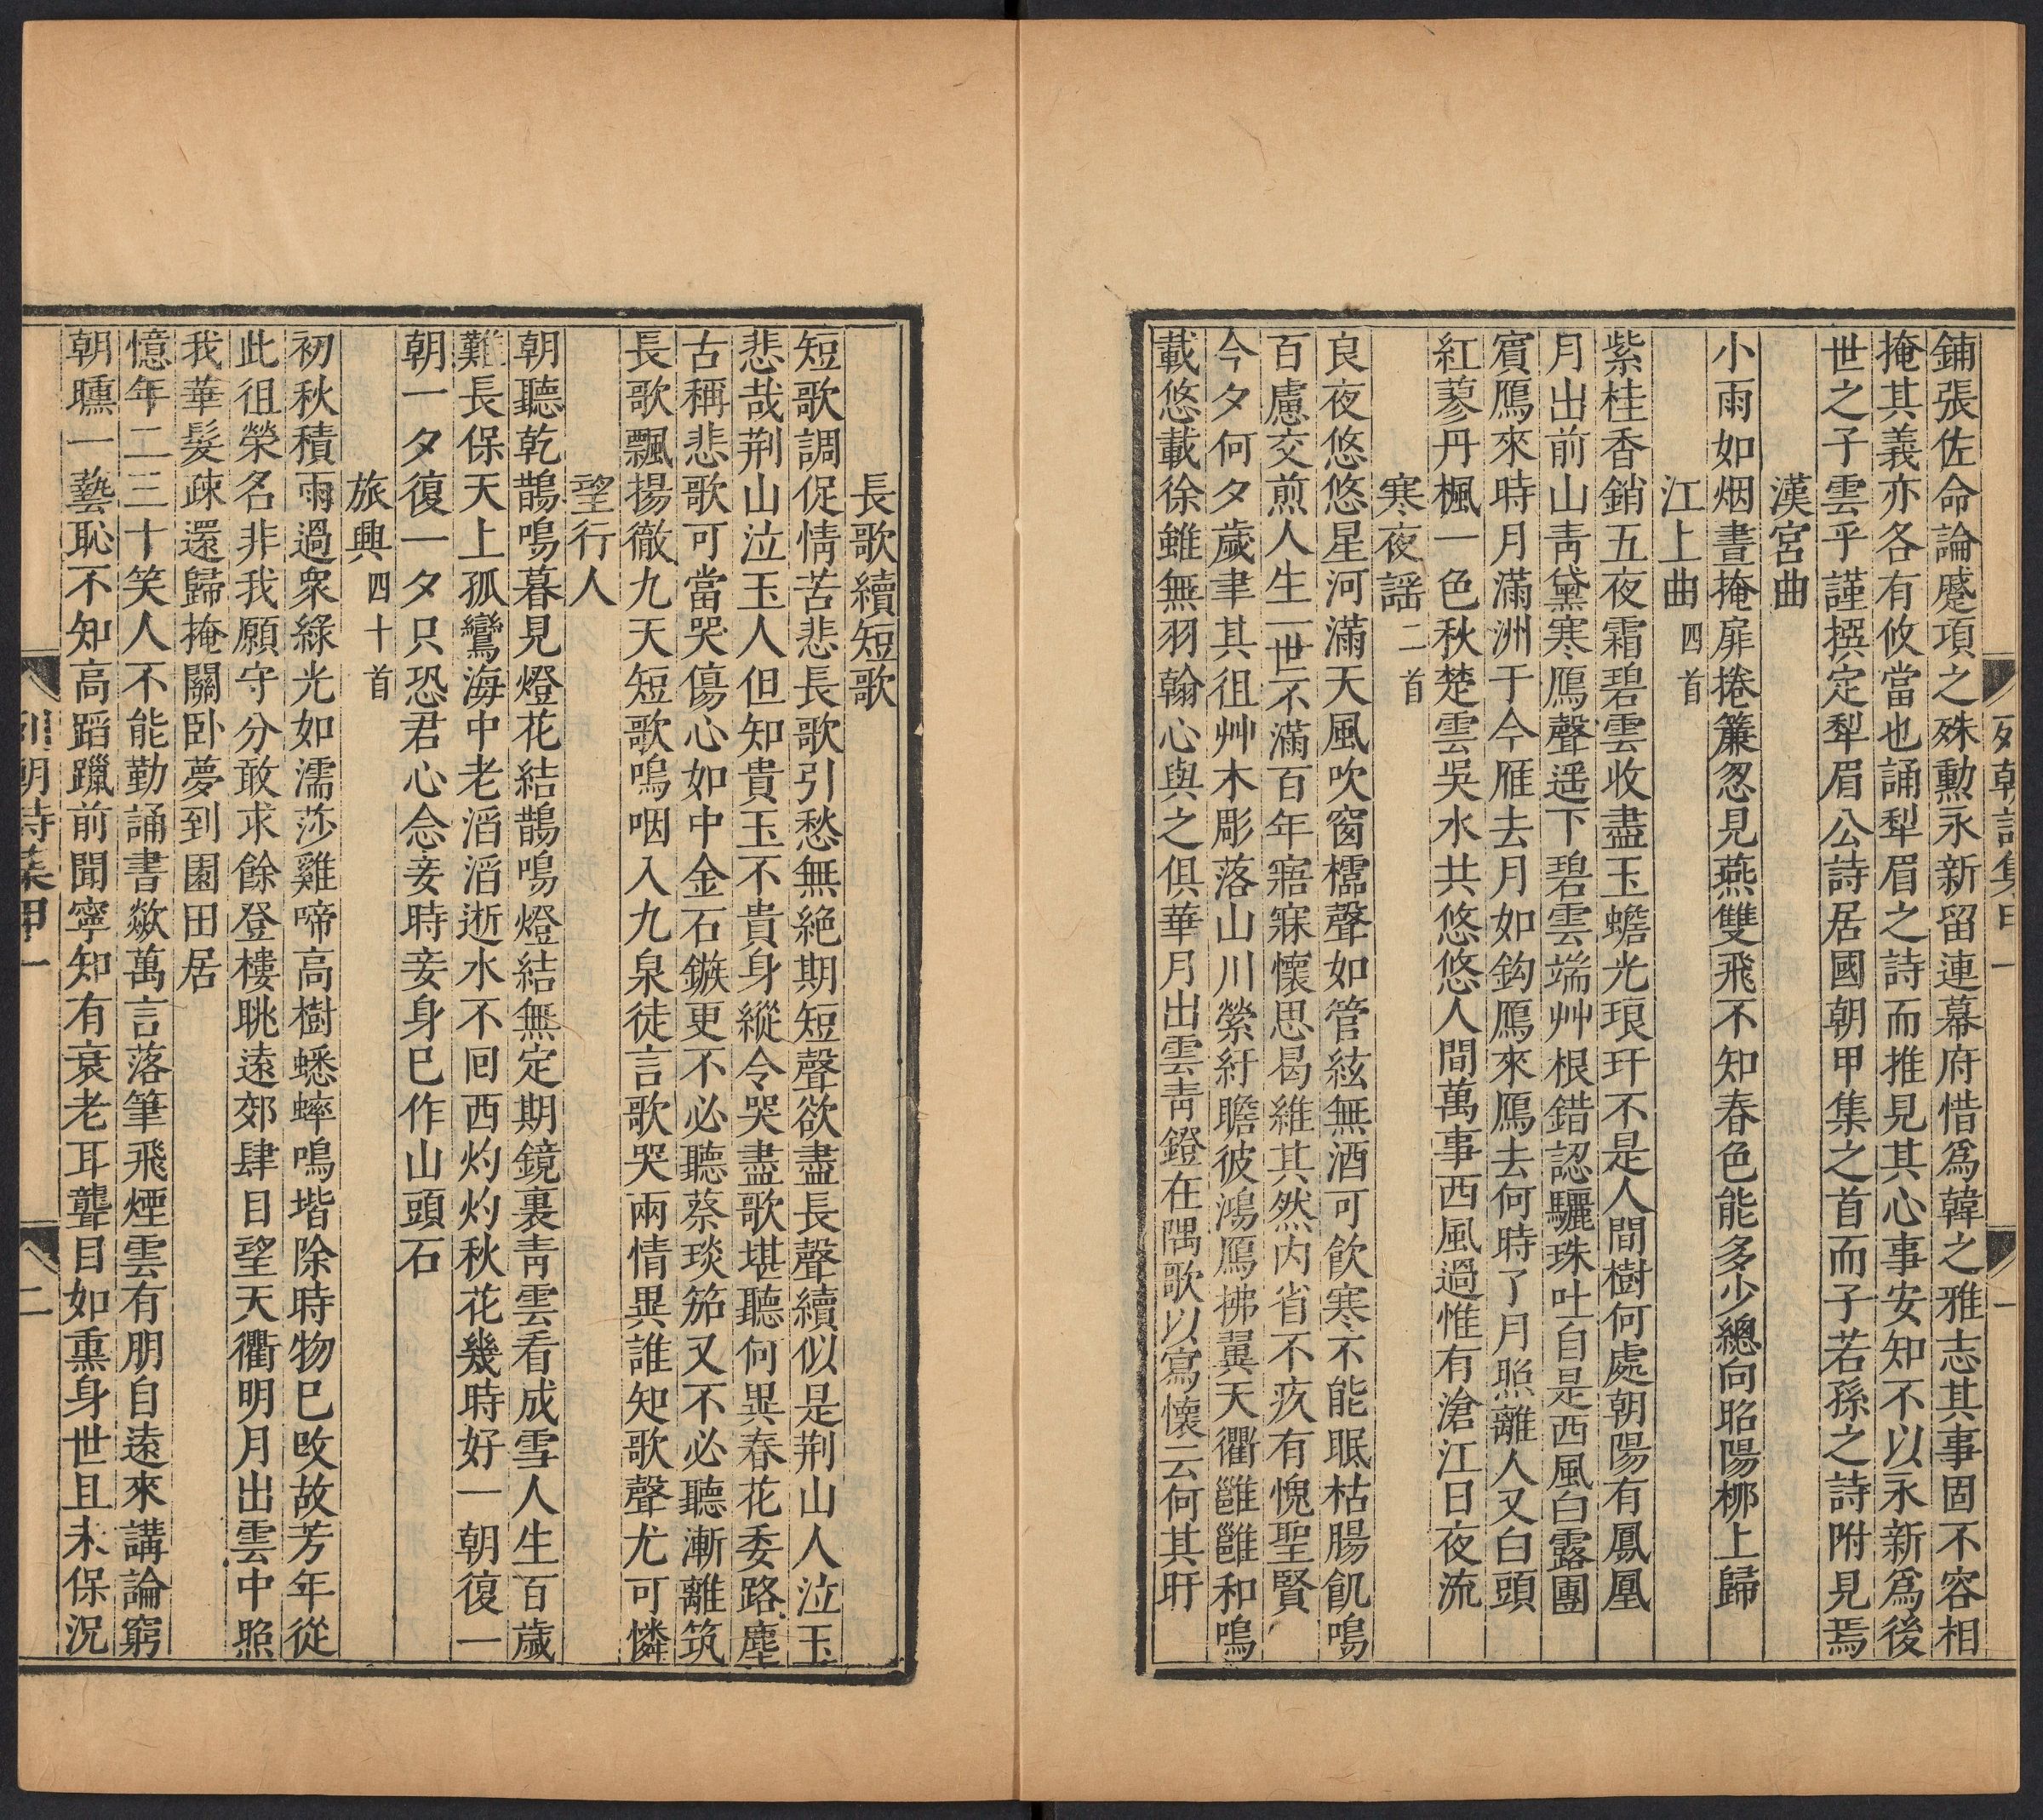 列朝詩集甲一
一
鋪張佐命論蹙項之殊勲永新留連幕府惜爲韓之雅志其事固不容相
掩其義亦各有攸當也誦犁眉之詩而推見其心事安知不以永新爲後
世之子雲乎謹撰定犁眉公詩居國朝甲集之首而子若孫之詩附見焉
漢宮曲
小雨如烟晝掩扉捲簾忽見燕雙飛不知春色能多少總向昭陽栁上歸
江上曲四首
紫桂香銷五夜霜碧雲收盡玉蟾光琅玕不是人間樹何處朝陽有鳳凰
月出前山靑黛寒鴈聲遥下碧雲端艸根錯認驪珠吐自是西風白露團
賓鴈來時月滿洲于今雁去月如鈎鴈來鴈去何時了月照離人又白頭
紅蓼丹楓一色秋楚雲吳水共悠悠人間萬事西風過惟有滄江日夜流
寒夜謡二首
良夜悠悠星河滿天風吹窗櫺聲如管絃無酒可飲寒不能眠枯腸飢鳴
百慮交煎人生一世不滿百年寤寐懷思曷維其然内省不疚有愧聖賢
今夕何夕歲聿其徂艸木彫落山川縈紆瞻彼鴻鴈拂翼天衢雝雝和鳴
載悠載徐雖無羽翰心與之俱華月出雲靑鐙在隅歌以寫懷云何其盱
長歌續短歌
短歌調促情苦悲長歌引愁無絶期短聲欲盡長聲續似是荆山人泣玉
悲哉荆山泣玉人但知貴玉不貴身縱令哭盡歌堪聽何異春花委路塵
古稱悲歌可當哭傷心如中金石鏃更不必聽蔡琰笳又不必聽漸離筑
長歌飄揚徹九天短歌嗚咽入九泉徒言歌哭兩情異誰知歌聲尤可憐
望行人
朝聽乾鵲鳴暮見燈花結鵲鳴燈結無定期鏡裏靑雲看成雪人生百歲
難長保天上孤鸞海中老滔滔逝水不囘西灼灼秋花幾時好一朝復一
朝一夕復一夕只恐君心念妾時妾身巳作山頭石
旅興四十首
初秋積雨過衆綠光如濡莎雞啼高樹蟋蟀鳴堦除時物巳攺故芳年從
此徂榮名非我願守分敢求餘登樓眺遠郊肆目望天衢明月出雲中照
我華髮疎還歸掩關卧夢到園田居
憶年二三十笑人不能勤誦書歘萬言落筆飛煙雲有朋自遠來講論窮
朝曛一藝恥不知高蹈躐前聞寧知有衰老耳聾目如熏身世且未保況
列朝詩集甲一
二